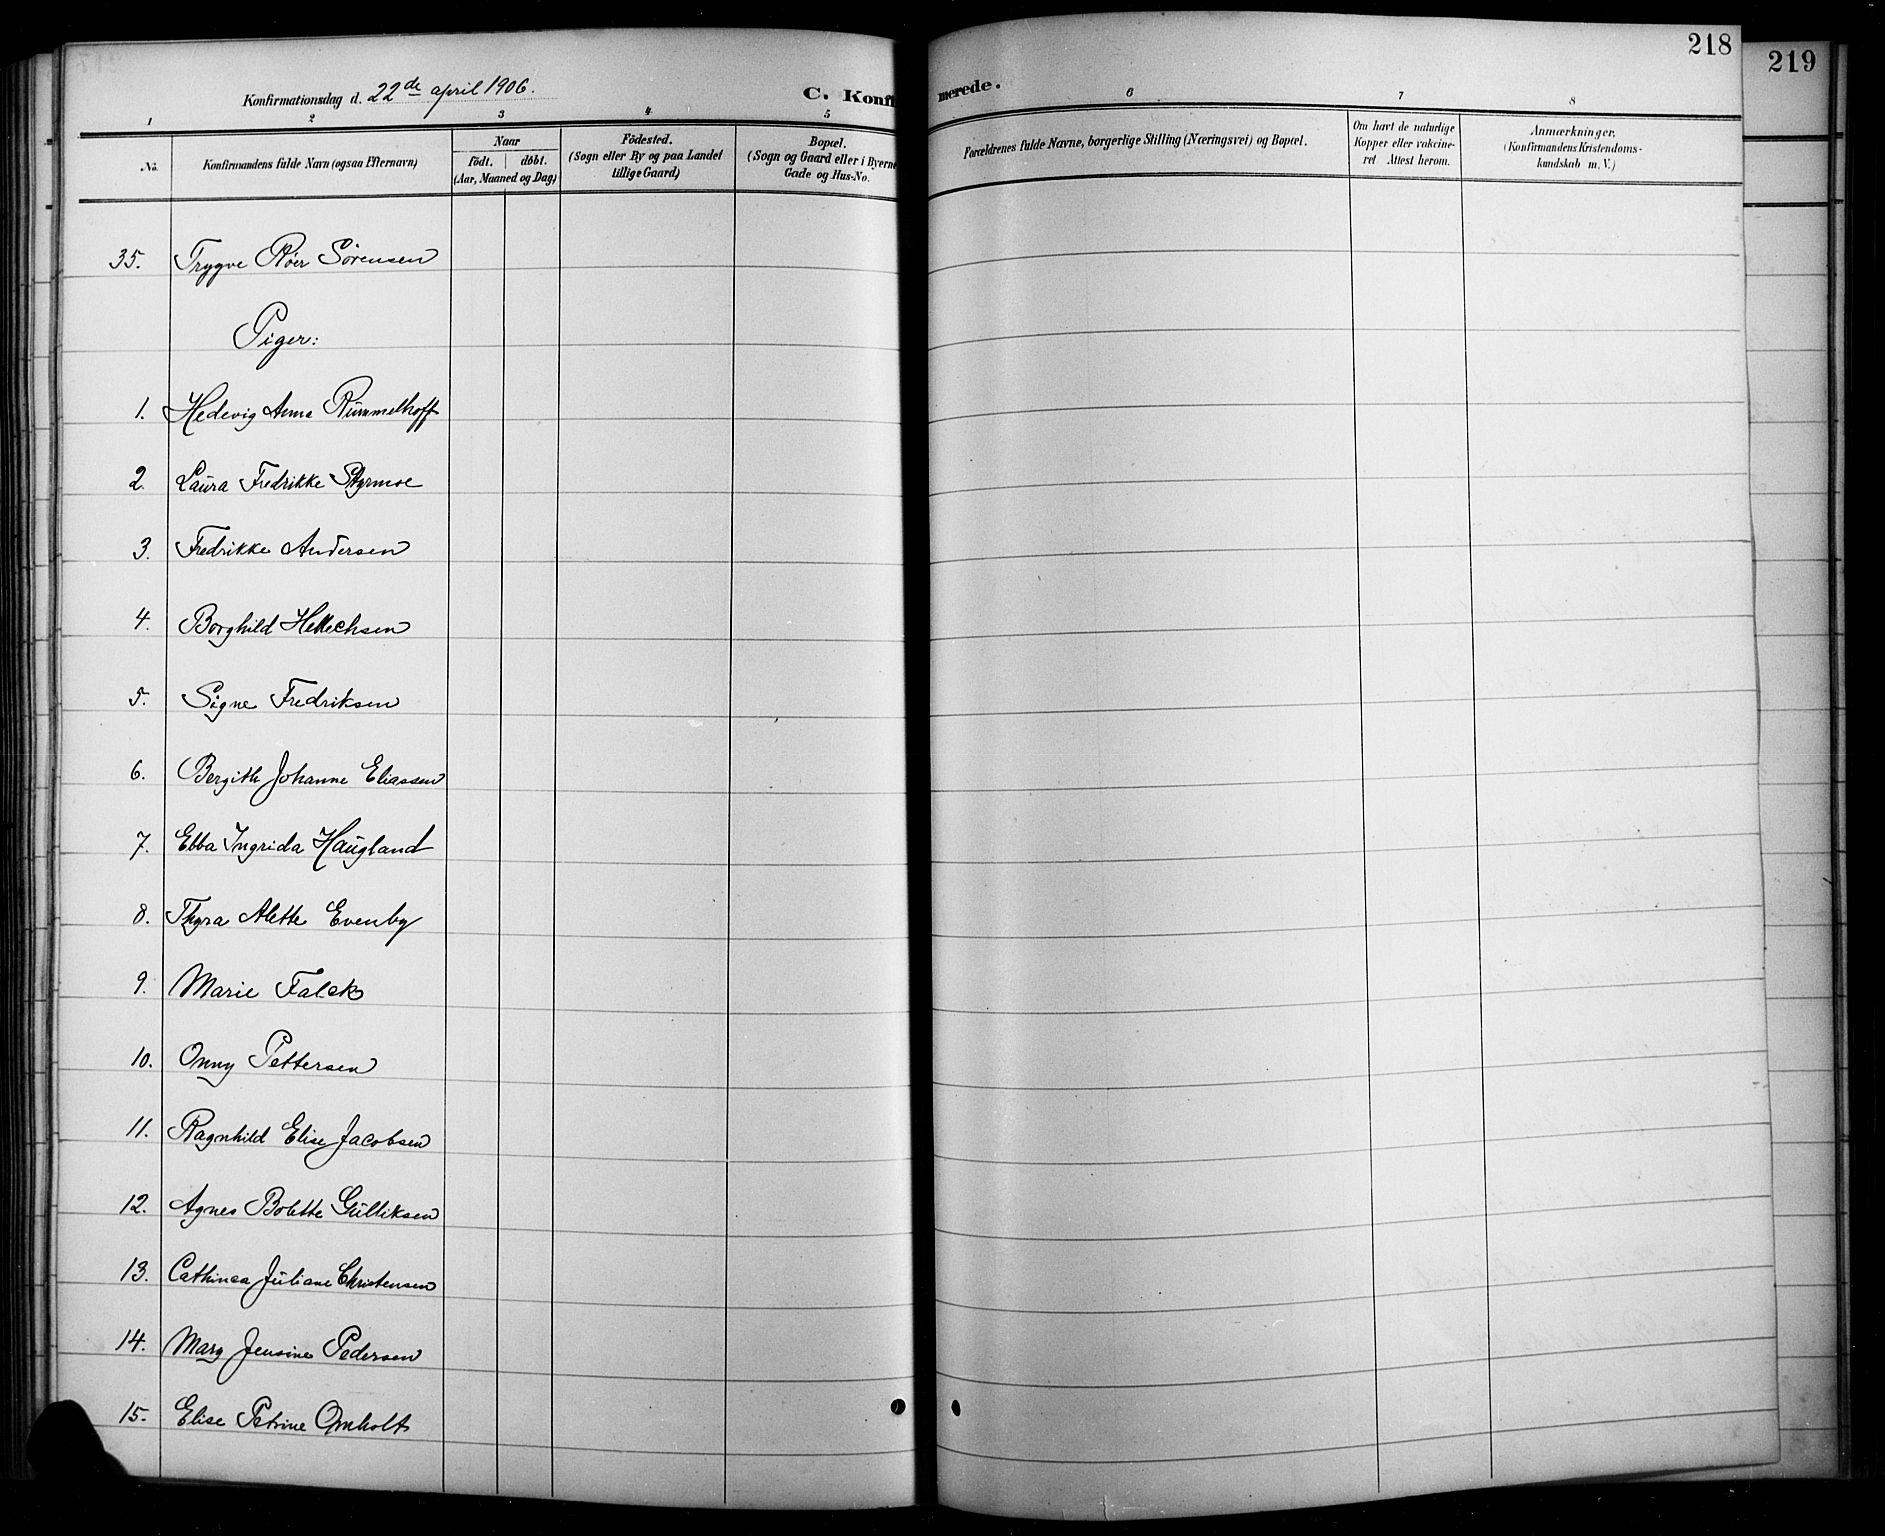 218
219
Konfirmationsdag d. 22de april 1906.
C. Konfi
merede.
1 2 3 4 5 6 7 8
No.
Konfirmandens fulde Navn (ogsaa Efternavn)
Naar
födt. döbt.
(Aar, Maaned og Dag)
Födested.
(Sogn eller By og paa Landet
tillige Gaard)
Bopæl.
(Sogn og Gaard eller i Byerne
Gade og Hus-No.
Forældrenes fulde Navne, borgerlige Stilling (Næringsvei) og Bopæl.
Om havt de naturlige
Kopper eller vakcine-
ret Attest herom.
Anmærkninger,
(Konfirmandens Kristendoms-
kundskab m. V.)
35. Trygve Röer Sörensen
Piger:
1. Hedevig Anna Rummelhoff
2. Laura Fredrikke Styrmoe
3. Fredrikke Andersen
4. Borghild
5. Signe Fredriksen
6. Bergith Johanne Eliassen
7. Ebba Ingrida Haugland
8. Thyra Alette Evenby
9. Marie Falck
10. Onny Pettersen
11. Ragnhild Elise Jacobsen
12. Agnes Bolette Gulliksen
13. Cathinca Juliane Christensen
14. Mary Jensine Pedersen
15. Elise Petrine Omholt